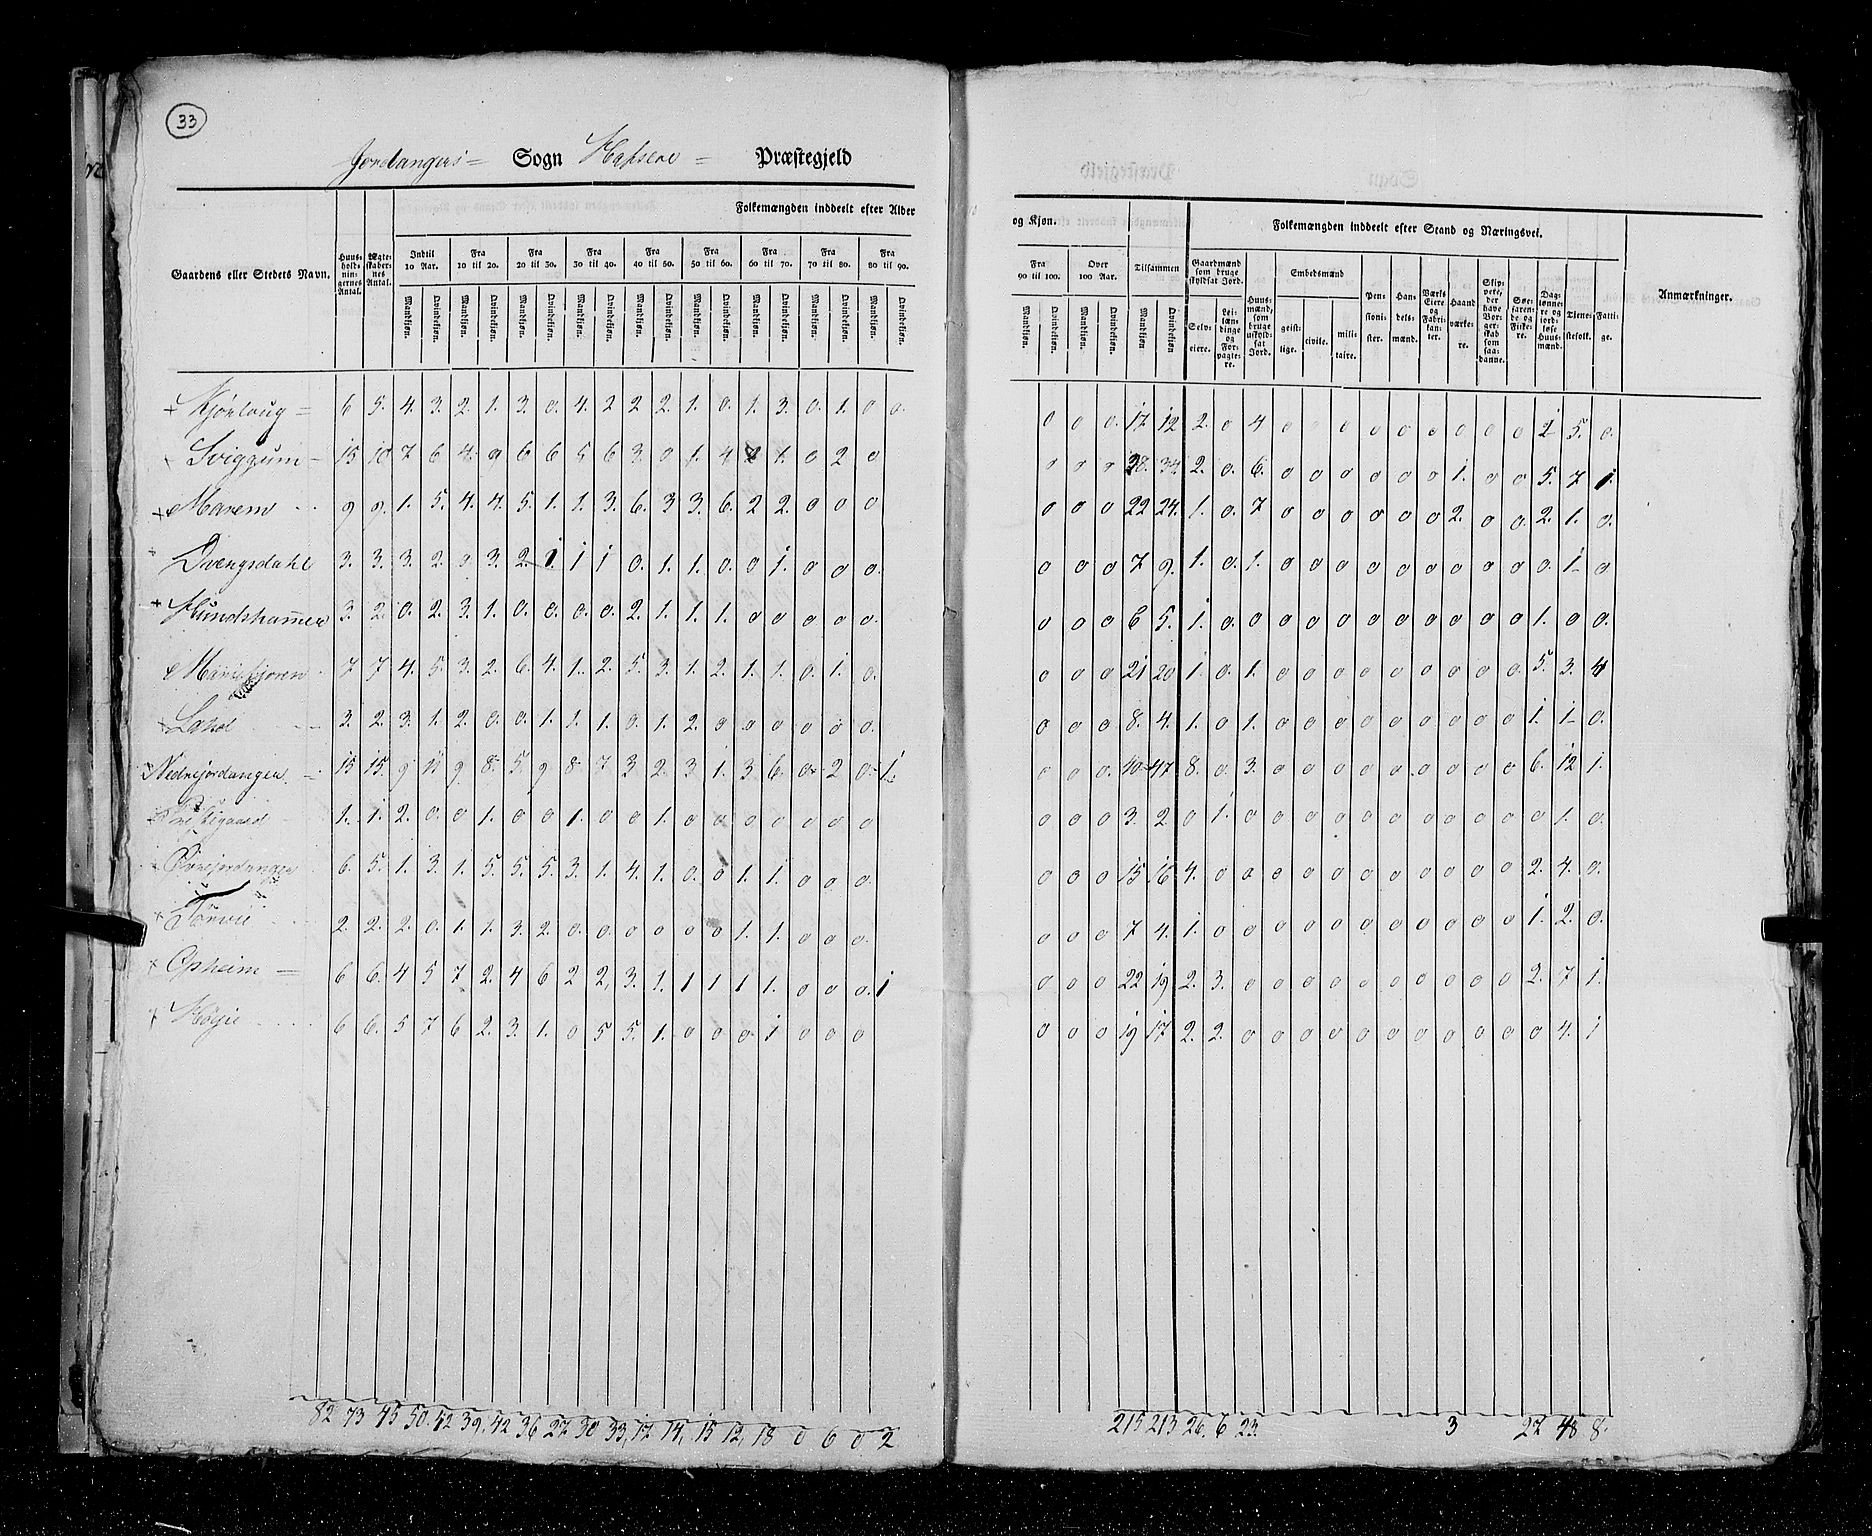 33
Jordangers = Sogn Hafsloe = Præstegjeld
Folkemængden inddeelt efter Alder
og Kjøn.
Folkemængden inddeelt efter Stand og Næringsvei.
Gaardens eller Stedets Navn.
Huus-holdnin-gernes Antal.
Ægte-skaber-nes Antal.
Indtil 10 Aar.
Fra 10 til 20.
Fra 20 til 30.
Fra 30 til 40.
Fra 40 til 50.
Fra 50 til 60.
Fra 60 til 70.
Fra 70 til 80.
Fra 80 til 90.
Fra 90 til 100.
Over 100 Aar.
Tilsammen
Mandkjøn. Qvindekjøn. Mandkjøn. Qvindekjøn. Mandkjøn. Qvindekjøn. Mandkjøn. Qvindekjøn. Mandkjøn. Qvindekjøn. Mandkjøn. Qvindekjøn. Mandkjøn. Qvindekjøn. Mandkjøn. Qvindekjøn. Mandkjøn. Qvindekjøn.
Mandkjøn. Qvindekjøn. Mandkjøn. Qvindekjøn. Mandkjøn Qvindekjøn
Gaardmænd som bruge skyldsat Jord.
Selv-eiere.
Lei-læn-dinge og For-pagte-re.
Huus-mænd, som bruge uskyld-sat Jord.
Embedsmænd
geist-lige.
civile.
mili-taire.
Pen-sioni-ster.
Han-dels-mænd.
Værks Eiere og Fabri-kan-ter.
Haand værke-re.
Skip-pere, der have Bor-ger-skab som saa-danne.
Søe-faren-de og Fiske-re.
Dag-lønne-re og jord-løse Huus-mænd.
Tjene-stefolk.
Fatti-ge.
Anmærkninger.
Kjørlaug = 6 5. 4. 3. 2. 1. 3. 0. 4. 2 2 2. 1. 0. 1. 3. 0. 1. 0 0. 0 0 0. 17 12 2. 0 4 0 0 0 0 0 0 0 0 0 2 5. 0.
Sviggum - 15 10 7 6 4. 0 6 6 5 6 3. 0 1. 4 2 1. 0 2. 0 0 0 0 38. 34. 2. 0. 6. 0 0 0 0 0 0 1. 0 0 5. 7 1.
Marem 9 9. 1. 5. 4. 4. 5. 1. 1. 3. 6. 3 3. 6. 2 2. 0 0 0 0 0 0 22 24. 1. 0. 7 0 0 0 0 0 0 2. 0 0. 2. 1. 0.
Qvengsdahl 3. 3. 3. 2. 0 3. 2. 1. 1 1 0. 1. 1. 0. 0 1. 0 0 0. 0 0 0 7 9. 1. 0. 1. 0 0 0 0 0 0 0 0 0 0. 1 0
Hundshammer 3. 2. 0. 2. 3. 1. 0. 0. 0. 0. 2. 1. 1. 1. 0 0 0 0 0. 0 0 0 6 5. 1. 0. 0 0 0 0 0 0 0 0 0 0 1. 0 0.
Mariefjøren 7 7 4. 5. 3. 2. 6. 4. 1. 2. 5. 3. 1. 2. 1. 1. 0. 1. 0. 0 0 0 21 20 1. 0. 1. 0 0 0 0 0 0 0 0 0. 5. 3. 4
3. 2. 3. 1. 2. 0. 0. 1. 1. 1. 0. 1. 2. 0 0. 0 0 0 0. 0 0 0 8. 4. 1. 0 1. 0 0 0 0 0 0 0 0 0 1. 1 0.
Nedrejordangen 15 15. 9 11 9 8. 5. 9 8. 7 3 2. 3 1. 3 6. 0. 2 0. 1. 0 0 0. 40 47 8. 0. 3. 0 0 0 0 0 0 0 0 0 6. 12 1.
1. 1. 2. 0. 0 1. 0 0 1. 0 0 1. 0 0 0 0 0 0 0 0 0 0 3. 2. 0 1. 0 0 0 0 0 0 0 0 0 0 0 1. 0.
Øvrejordangen 6. 5. 1. 3. 1. 5. 5. 5. 3. 1. 4. 1. 0. 0 1. 1. 0 0 0. 0 0 0 15 16 4. 0 0 0 0 0 0 0 0 0 0 0 2. 4. 0.
2. 2. 2. 0. 1. 1. 3. 2. 0. 0. 0 0 0 0 1. 1. 0 0 0. 0 0 0 7 4. 1. 0 0 0 0 0 0 0 0 0 0 0 1. 2. 0.
Opheim = 6 6. 4 5 7 2. 4 6 2 2, 3. 1. 1 1 1 1. 0 0 0. 1 0 0 0 22 19 2. 3. 0 0 0 0 0 0 0 0 0 0 2. 7 1.
Høyie 6 6. 5 7 6 2. 3. 1. 0 5 5. 1. 0 0 0. 1 0 0 0 0 0 0 19 17 2. 2. 0 0 0 0 0 0 0 0 0 0 0 4. 1
82 73 45 50. 42 39. 42 36 27 30 33, 17 14, 15 12, 18 0 6 0 2 215 213 26. 6 23. 3 27 48 8.